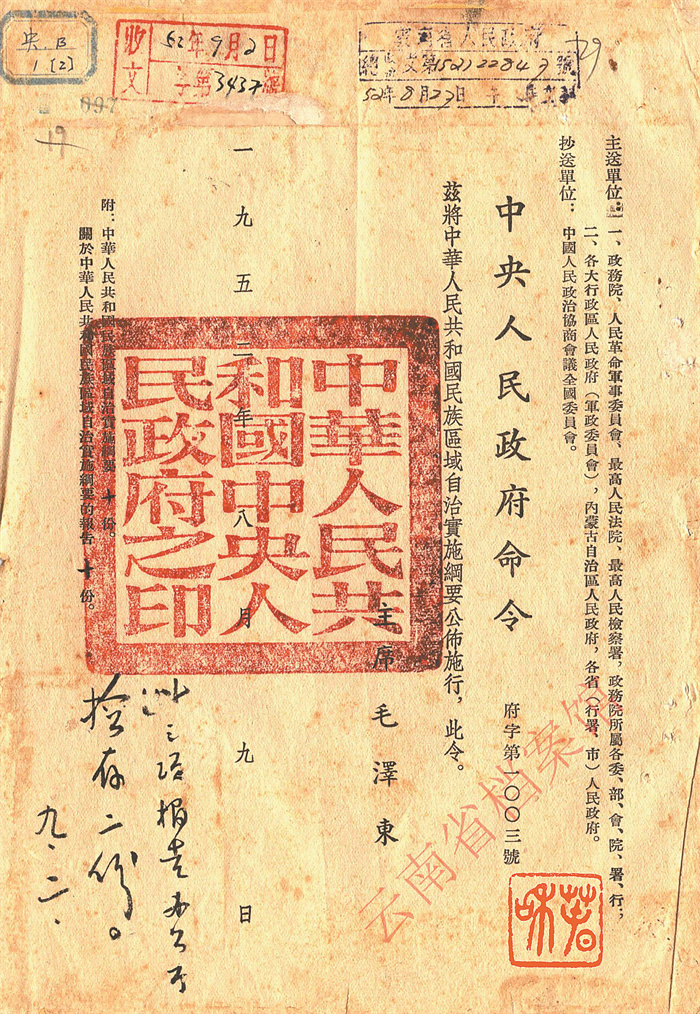 央 B
1 [2]
收文
52年9月2日
字第3437號
雲南省人民政府
總收文第152122843號
52年8月23日
29
097
19
主送單位：一、政務院、人民革命軍事委員會、最高人民法院、最高人民檢察署，政務院所屬各委、部、會、院、署、行；
二、各大行政區人民政府（軍政委員會），內蒙古自治區人民政府，各省（行署、市）人民政府。
抄送單位：中國人民政治協商會議全國委員會。
中央人民政府命令
府字第一〇〇三號
茲將中華人民共和國民族區域自治實施綱要公佈施行，此令。
主席 毛澤東
一九五二年八月九日
中華人民共
和國中央人
民政府之印
附：中華人民共和國民族區域自治實施綱要 十 份。
關於中華人民共和國民族區域自治實施綱要的報告 十 份。
檢存二份。
九.二.
云南省档案馆